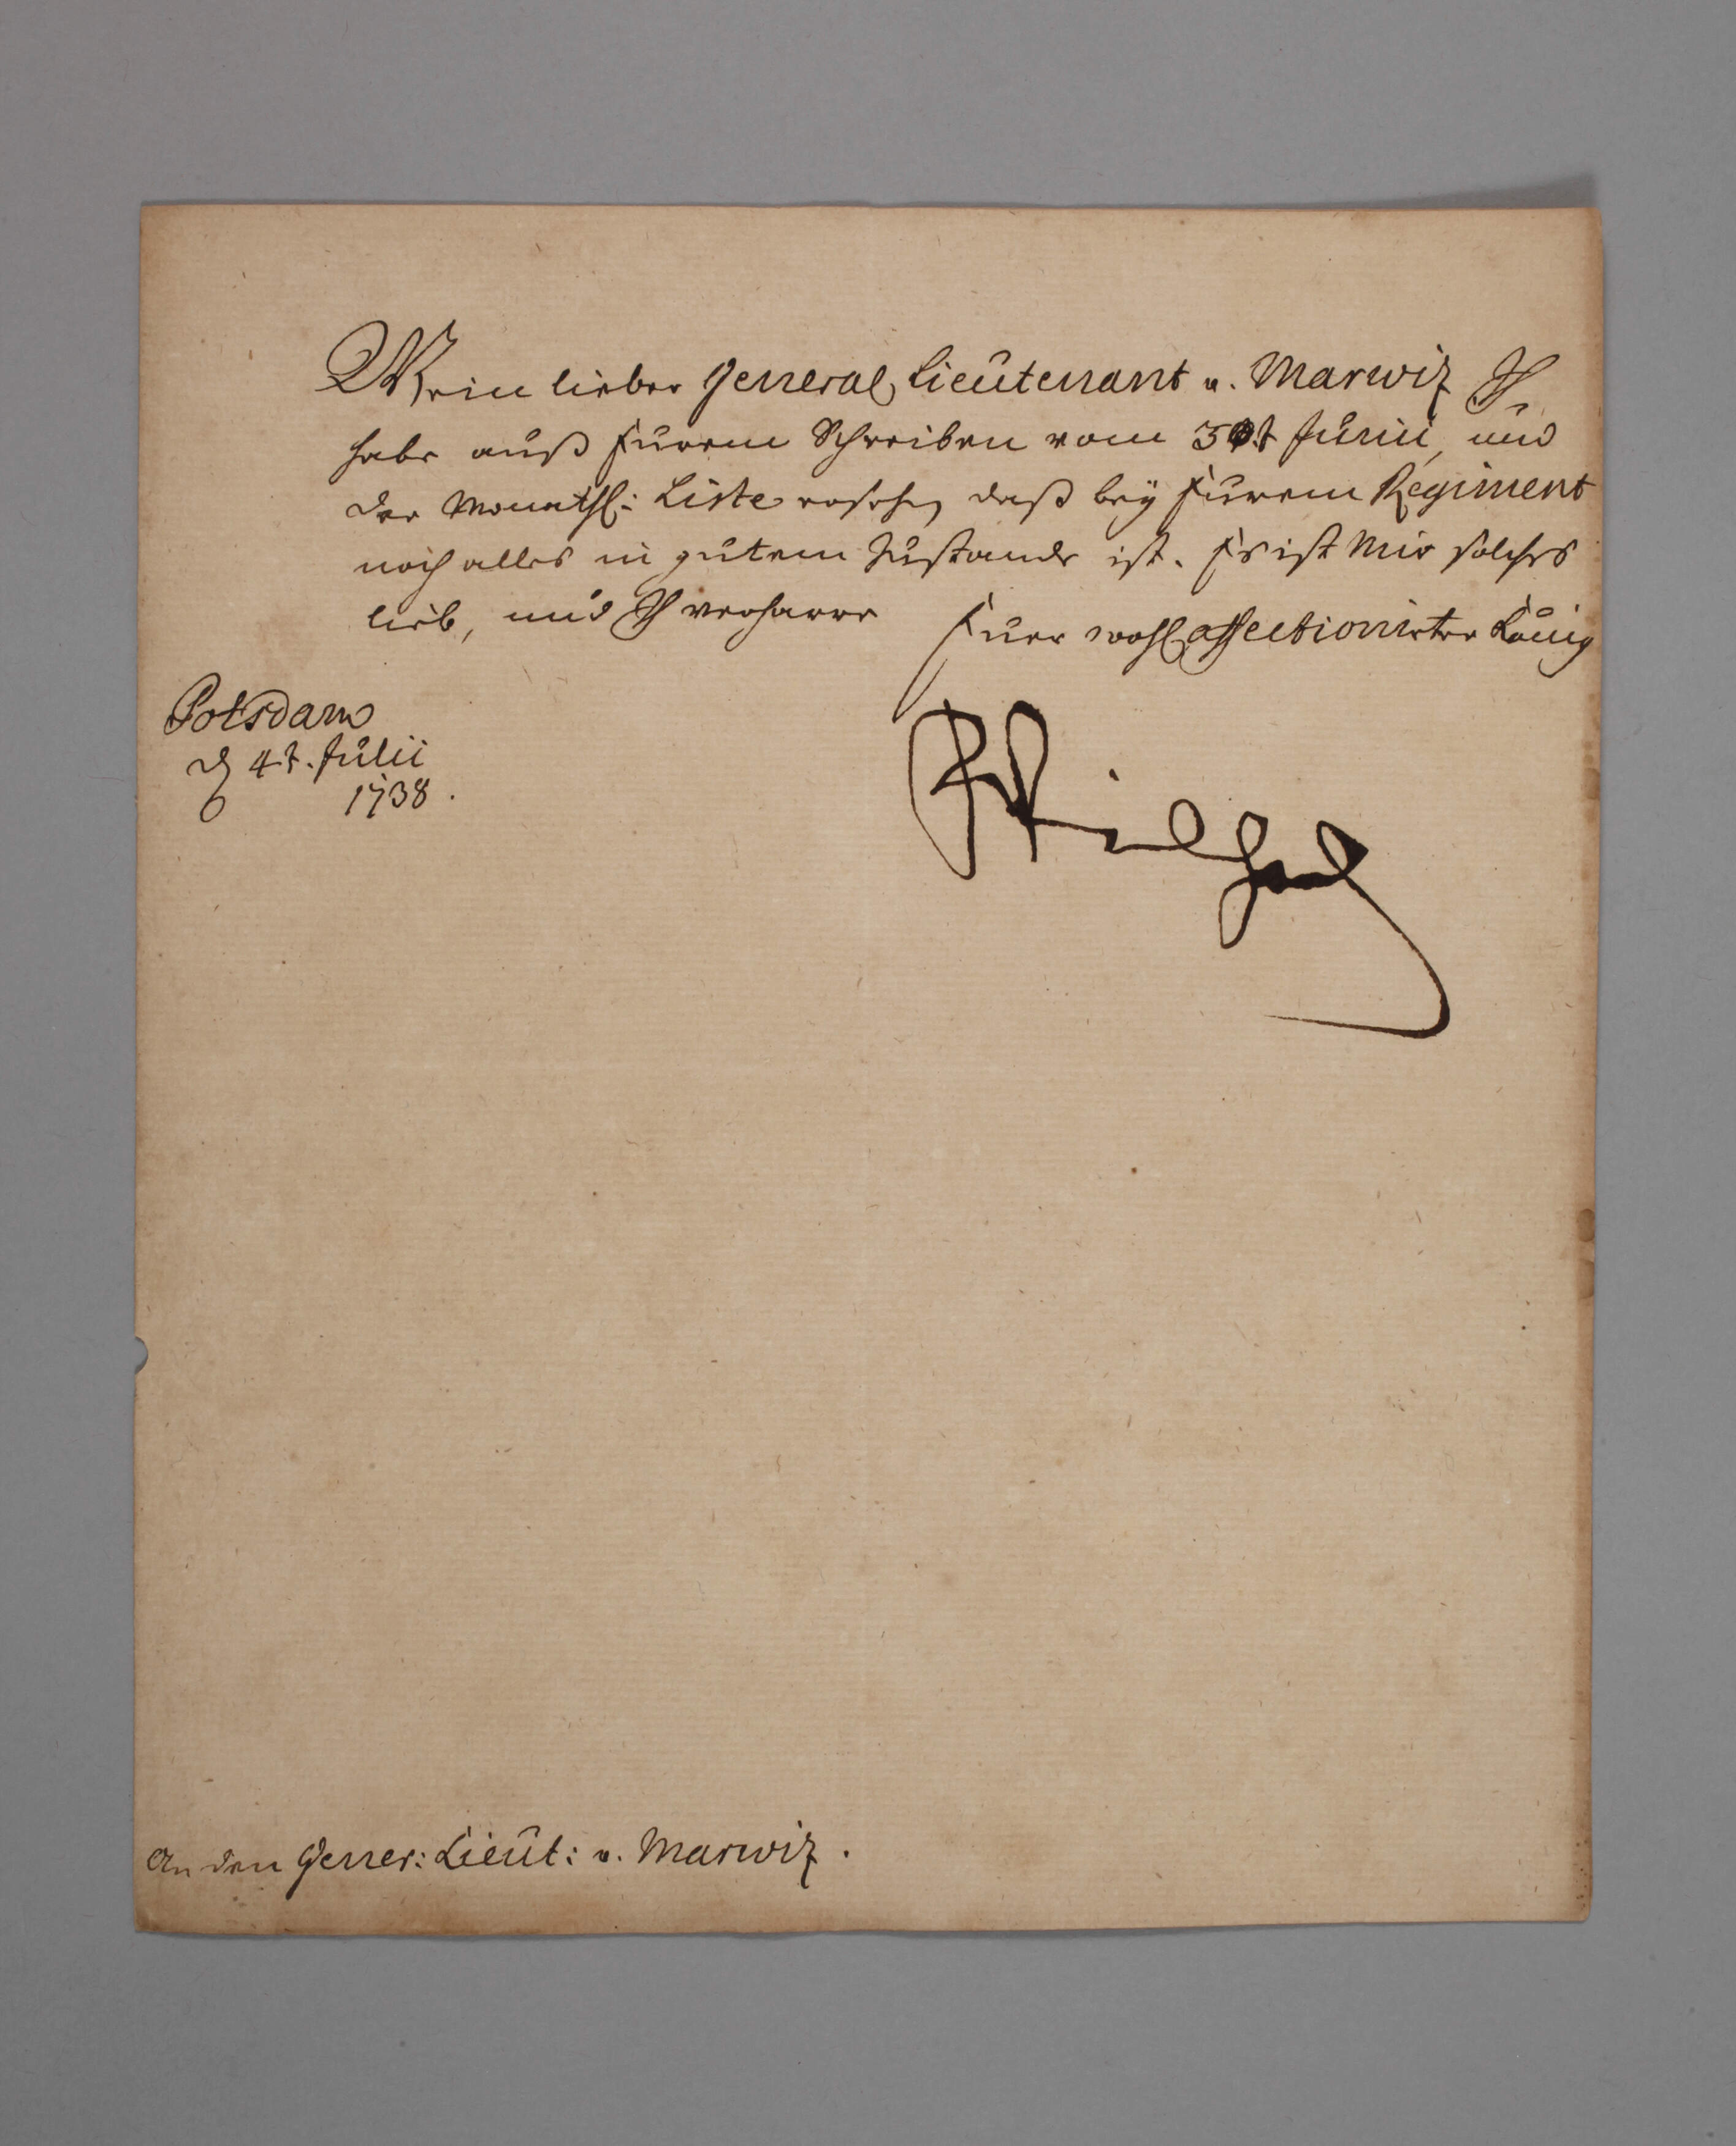 Mein lieber General Lieutenant v. Marwiz Ich
habe auß Eurem Schreiben vom 30t Junii, und
der Monathl: Liste ersehen, daß bey Eurem Regiment
noch alles in gutem Zustande ist. Es ist Mir solches
lieb, und Ich verharre Euer wohl affectionirter König
Potsdam
d 4t. Julii
1738.
FWilhelm
An den Gener: Lieut: v. Marwiz.